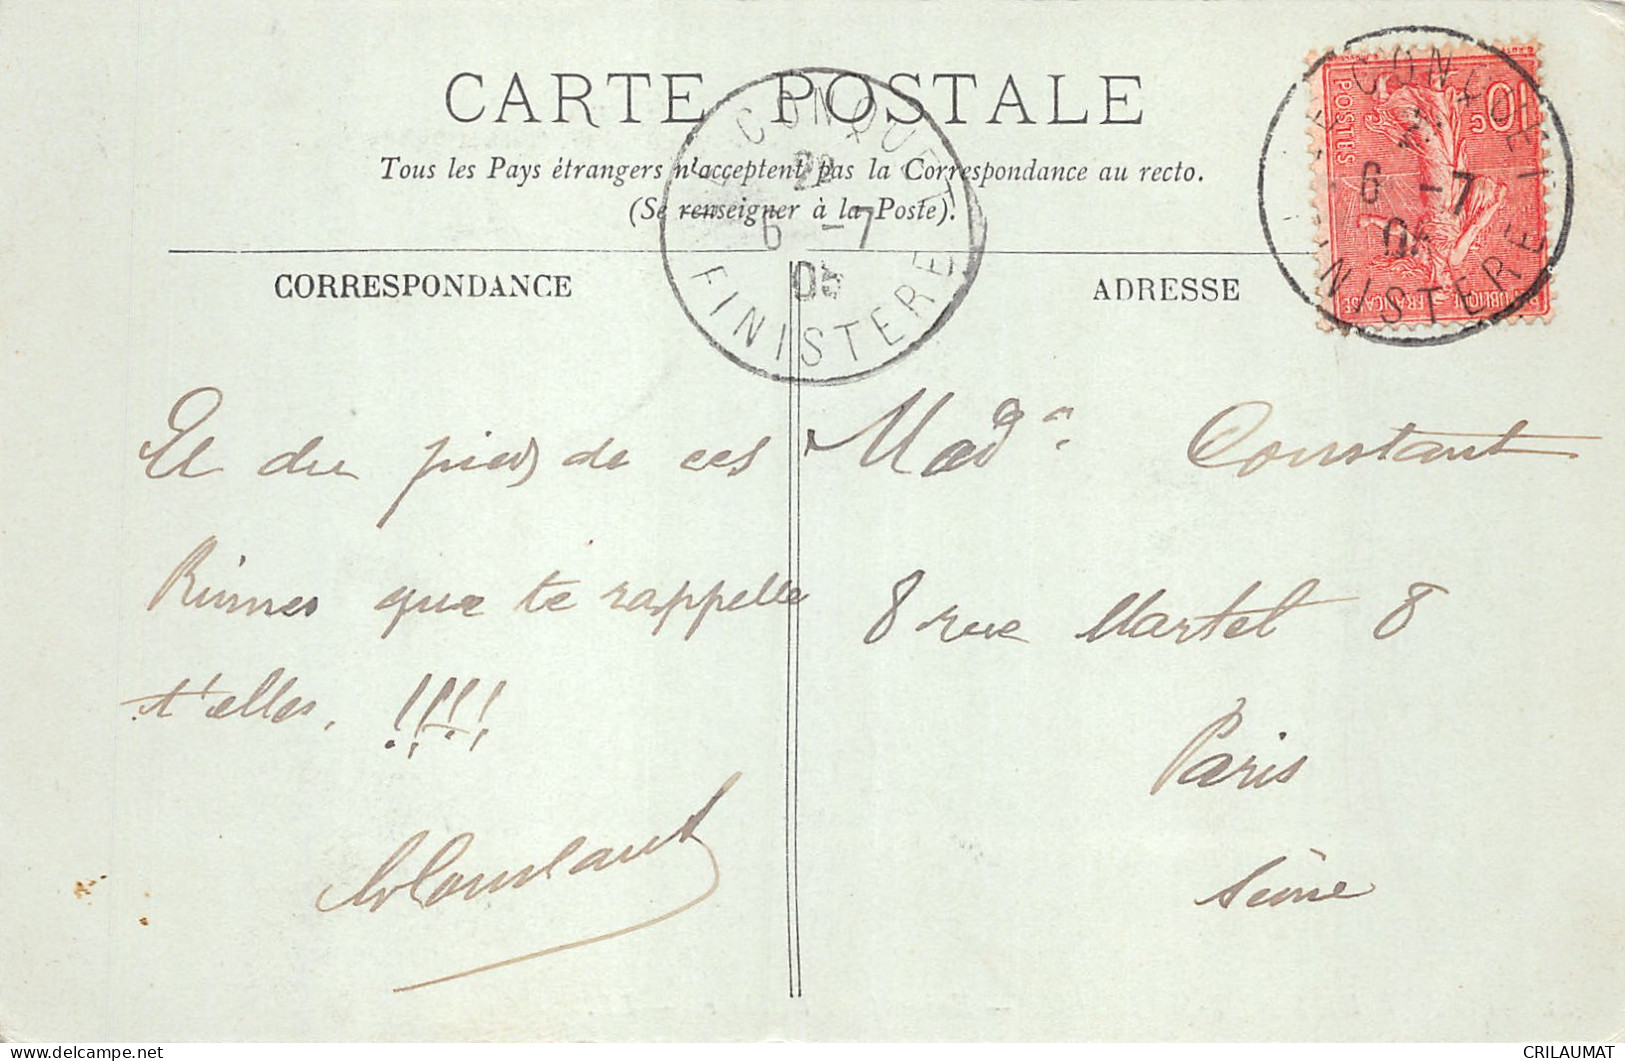 CARTE POSTALE
Tous les Pays étrangers n'acceptent pas la Correspondance au recto.
(Se renseigner à la Poste).
LE CONQUET
22
6 -7
05
FINISTERE
LE CONQUET
6 -7
05
FINISTERE
10c
POSTES
REPUBLIQUE FRANCAISE
CORRESPONDANCE
ADRESSE
Et du pied de ces
Ruines que te rappelle
t'elles, !!!!
Constant
Mad^e Constant
8 rue Martel 8
Paris
Seine
CRILAUMAT